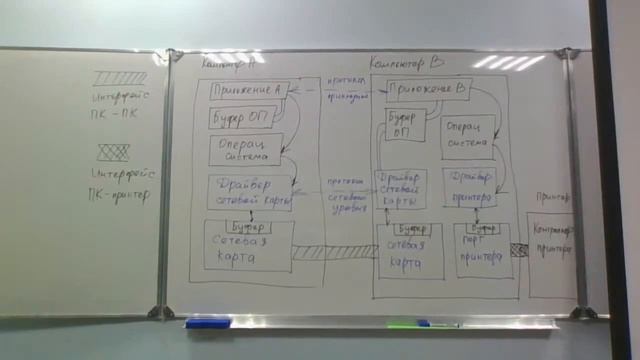 Интерфейс
ПК - ПК
Интерфейс
ПК - принтер
Компьютер А
Приложение А
Буфер ОП
Операц
система
Драйвер
сетевой карты
Буфер
Сетевая
карта
протокол
прикладно
протокол
сетевого
уровня
Компьютер В
Приложение В
Буфер
ОП
Операц
система
Драйвер
сетевой
карты
Драйвер
принтера
Буфер
сетевая
карта
Буфер
порт
принтера
Принтер
принтера